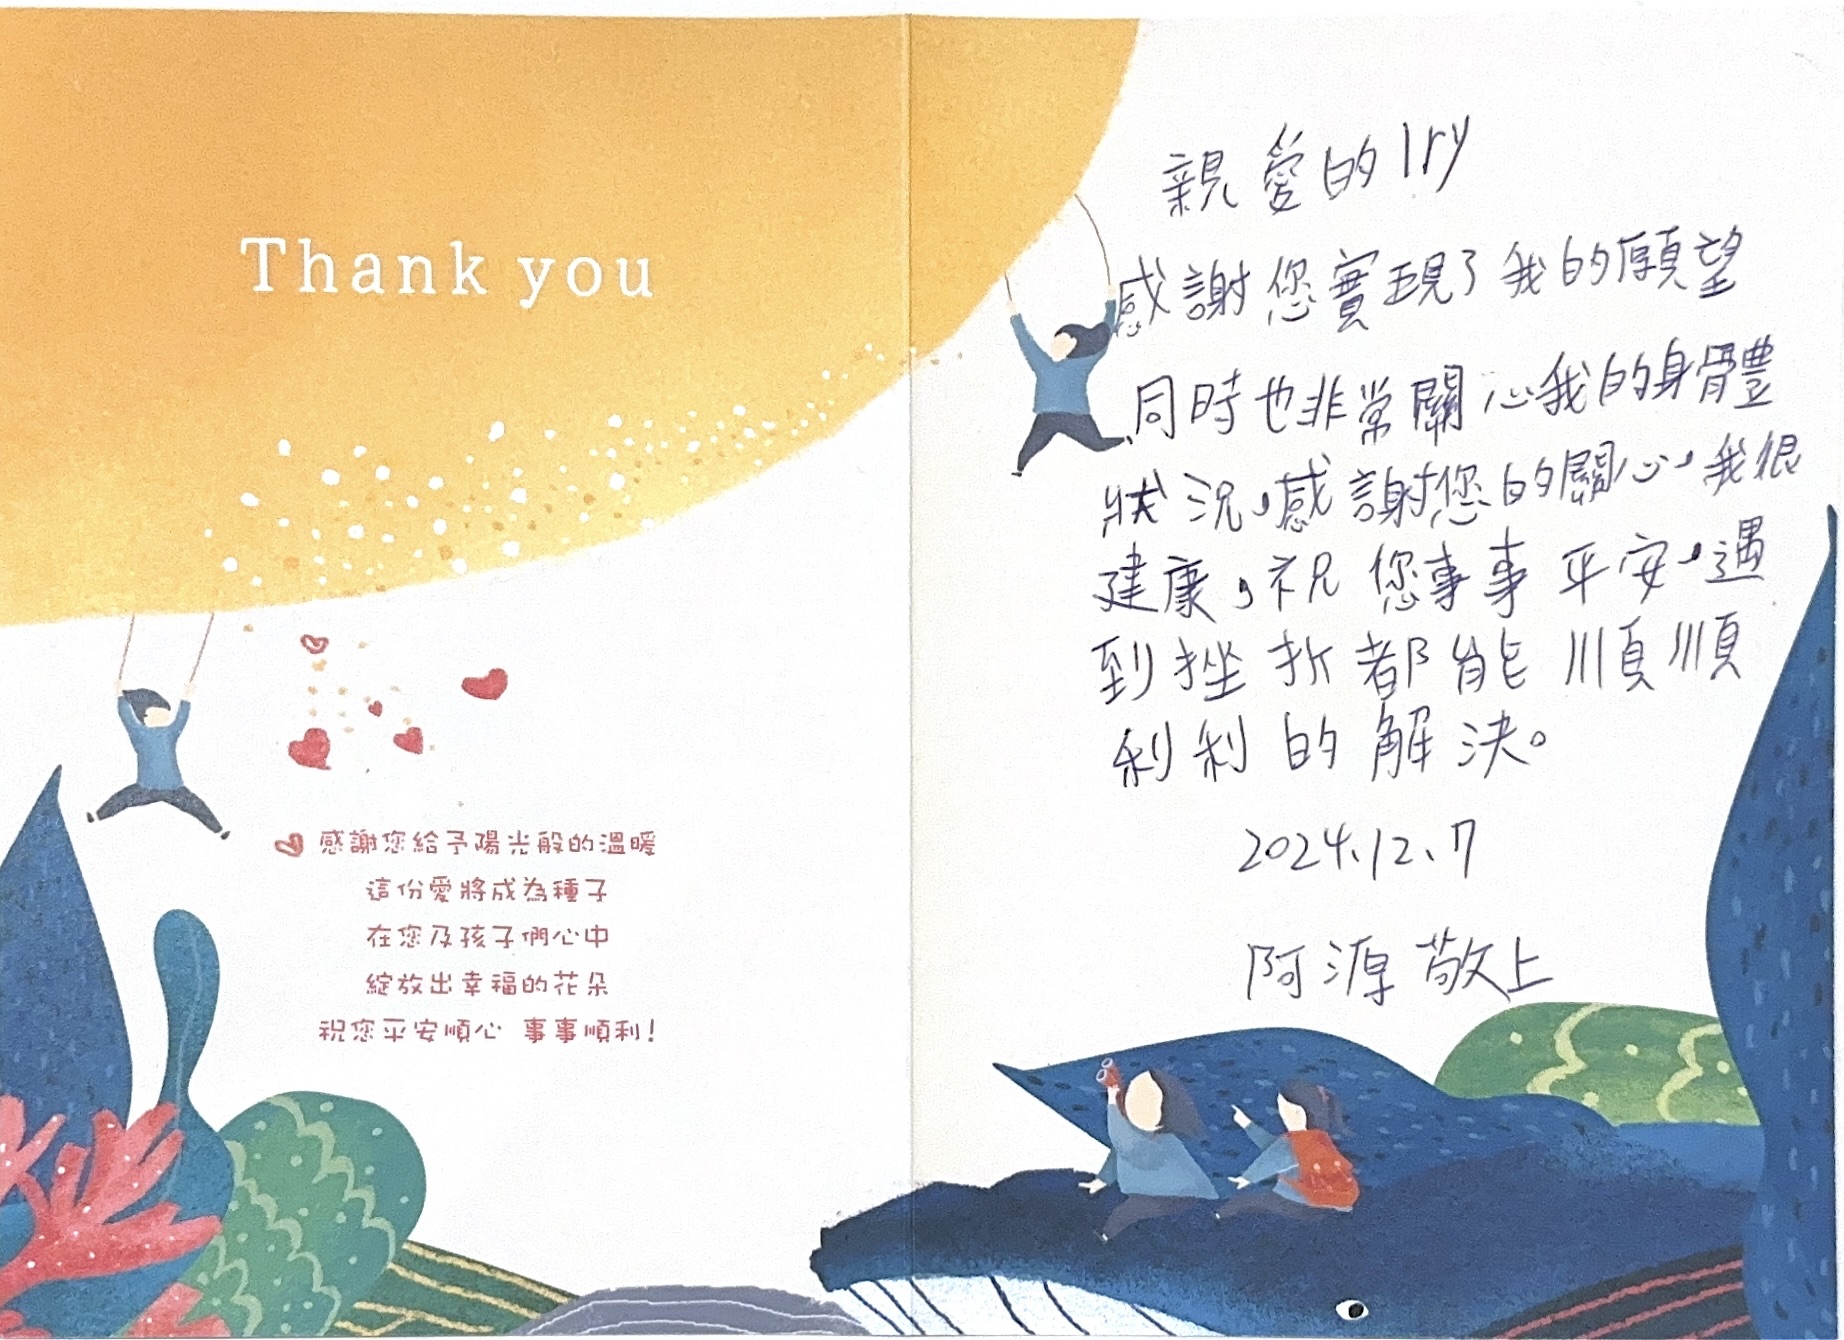 Thank you
感謝您給予陽光般的溫暖
這份愛將成為種子
在您及孩子們心中
綻放出幸福的花朵
祝您平安順心 事事順利!
親愛的Iry
感謝您實現了我的願望
同時也非常關心我的身體
狀況,感謝您的關心,我很
健康,祝您事事平安,遇
到挫折都能順順
利利的解決。
2024.12.7
阿源敬上